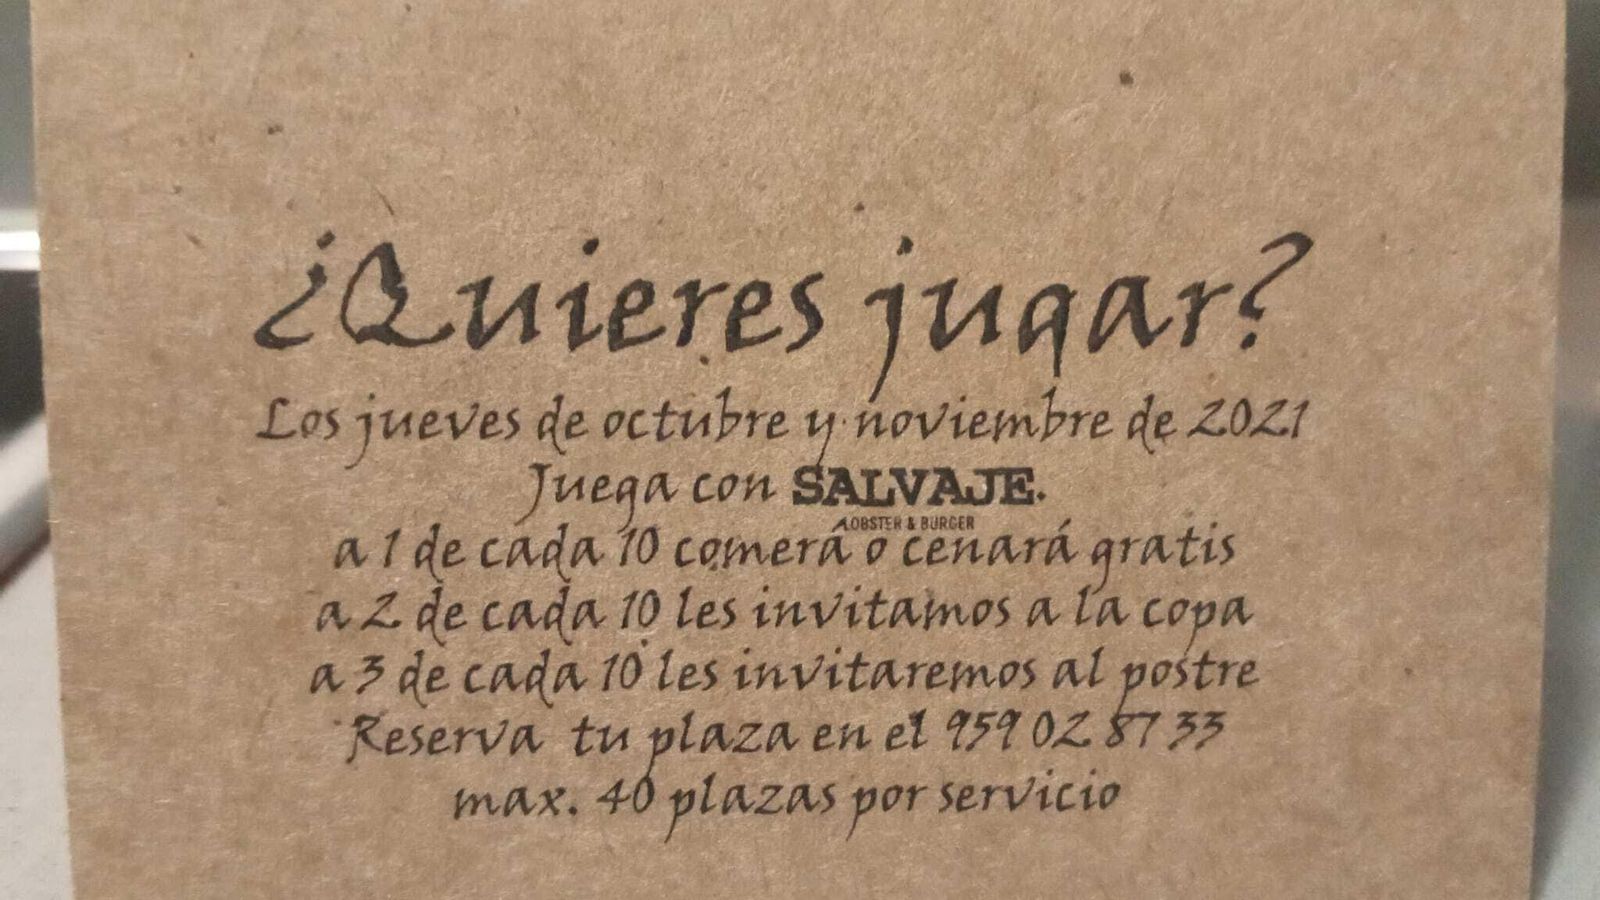 ¿Quieres jugar?
Los jueves de octubre y noviembre de 2021
Juega con SALVAJE.
LOBSTER & BURGER
a 1 de cada 10 comerá o cenará gratis
a 2 de cada 10 les invitamos a la copa
a 3 de cada 10 les invitaremos al postre
Reserva tu plaza en el 959 02 87 33
max. 40 plazas por servicio